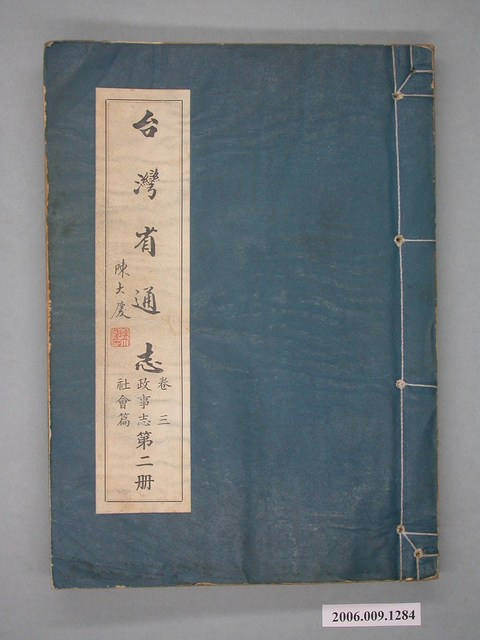 台灣省通志
卷三
政事志
社會篇
第二册
陳大慶
2006.009.1284